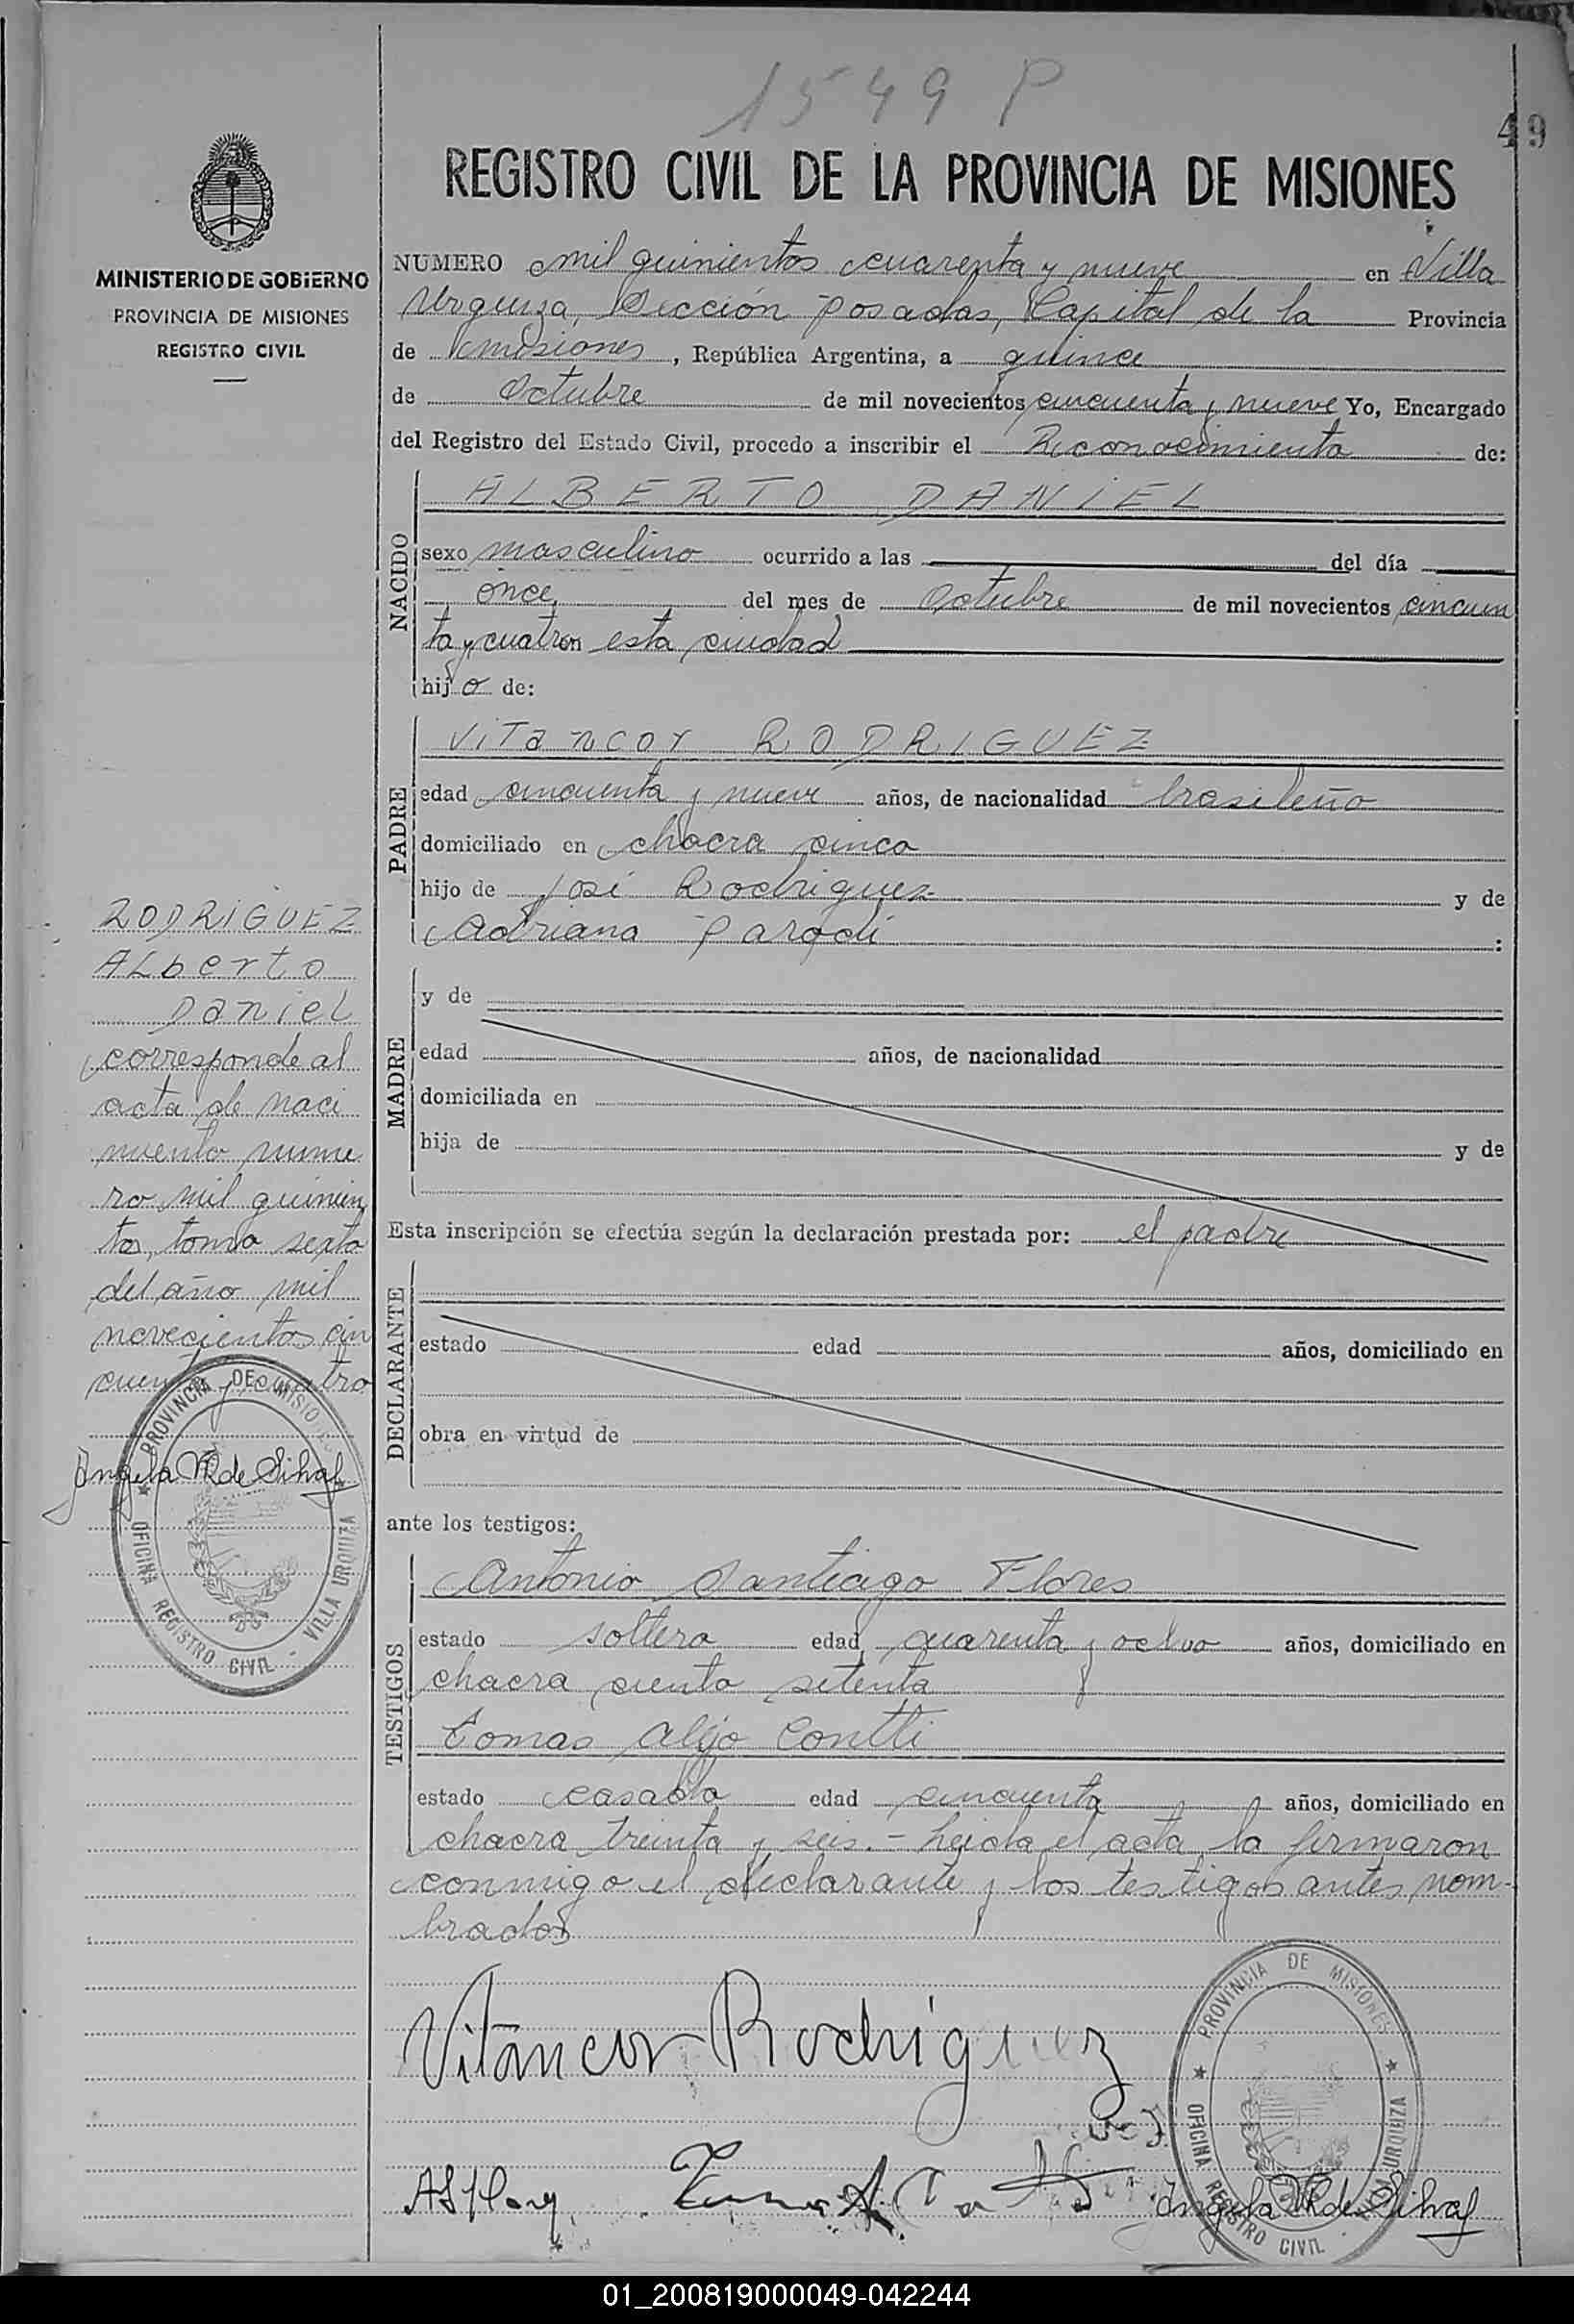 1549 P
49
REGISTRO CIVIL DE LA PROVINCIA DE MISIONES
MINISTERIO DE GOBIERNO
PROVINCIA DE MISIONES
REGISTRO CIVIL
NUMERO mil quinientos cuarenta y nueve en Villa
Urquiza, Sección Posadas, Capital de la Provincia
de misiones, República Argentina, a quince
de Octubre de mil novecientos cincuenta y nueve Yo, Encargado
del Registro del Estado Civil, procedo a inscribir el Reconocimiento de:
NACIDO
ALBERTO DANIEL
sexo masculino ocurrido a las del día
once del mes de Octubre de mil novecientos cincuen
ta y cuatro en esta ciudad
hijo de:
PADRE
VITancor RODRIGUEZ
edad cincuenta y nueve años, de nacionalidad brasileño
domiciliado en chacra cinco
hijo de José Rodriguez y de
Adriana Parodi :
MADRE
y de
edad años, de nacionalidad
domiciliada en
hija de y de
Esta inscripción se efectúa según la declaración prestada por: el padre
DECLARANTE
estado edad años, domiciliado en
obra en virtud de
ante los testigos:
TESTIGOS
Antonio Santiago Flores
estado soltero edad cuarenta y ocho años, domiciliado en
chacra ciento setenta
Tomas Alejo Contti
estado casado edad cincuenta años, domiciliado en
chacra treinta y seis.- Leida el acta la firmaron
conmigo el declarante y los testigos antes nom-
brados
Vitancor Rodriguez
PROVINCIA DE MISIONES
OFICINA REGISTRO CIVIL - VILLA URQUIZA
RODRIGUEZ
ALberto
DanieL
corresponde al
acta de naci
miento nume
ro mil quinien
tos, tomo sexto
del año mil
novecientos cin
cuenta y cuatro
PROVINCIA DE MISIONES
OFICINA REGISTRO CIVIL - VILLA URQUIZA
01_200819000049-042244